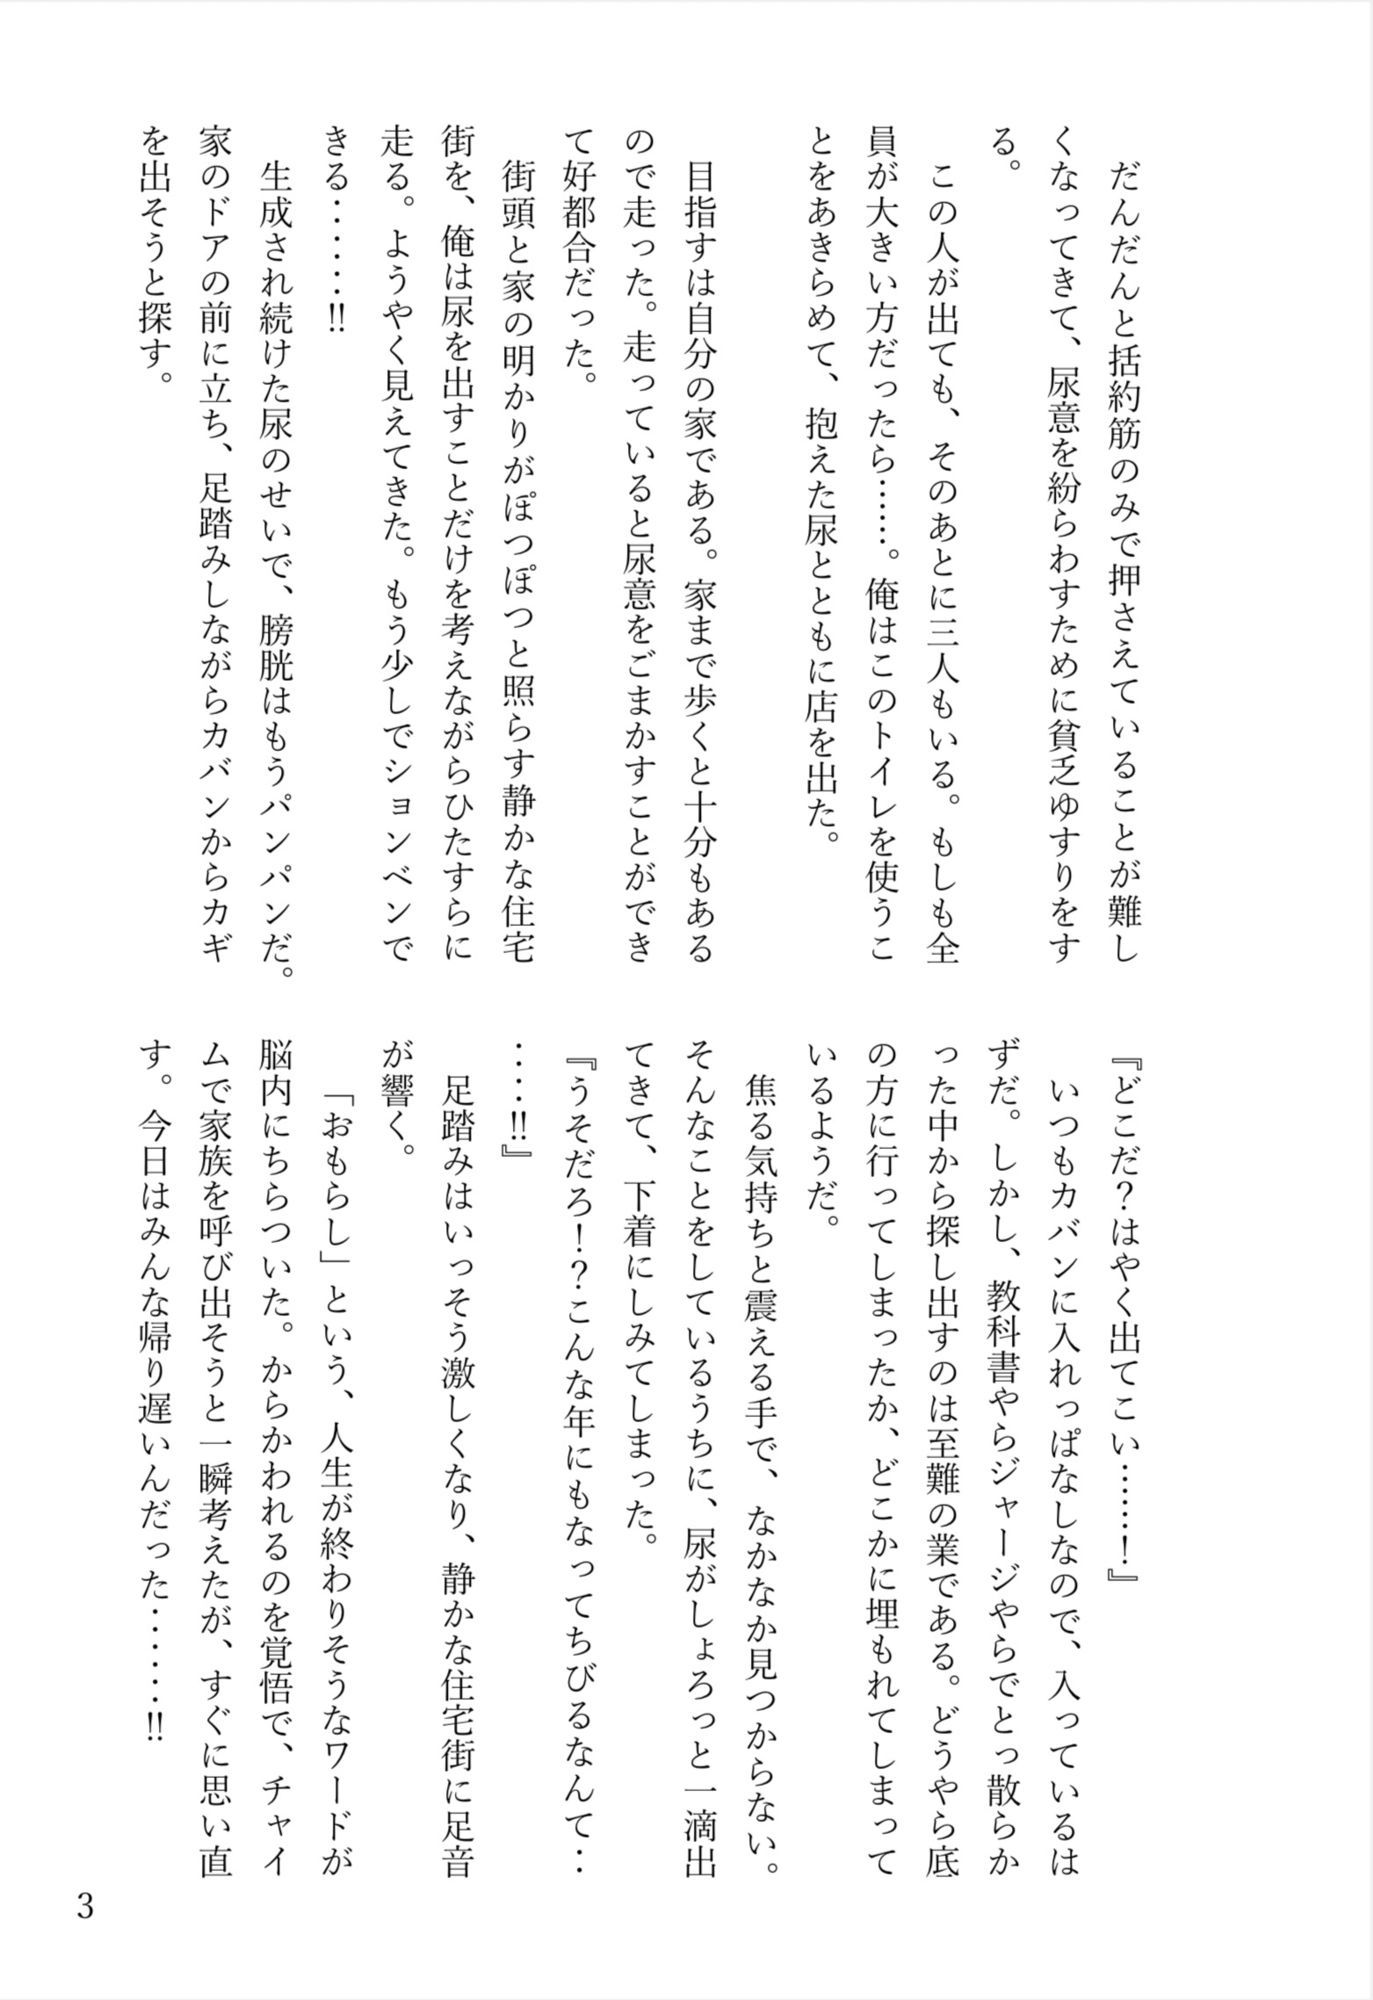 だんだんと括約筋のみで押さえていることが難し
くなってきて、尿意を紛らわすために貧乏ゆすりをす
る。
　この人が出ても、そのあとに三人もいる。もしも全
員が大きい方だったら……。俺はこのトイレを使うこ
とをあきらめて、抱えた尿とともに店を出た。
　目指すは自分の家である。家まで歩くと十分もある
ので走った。走っていると尿意をごまかすことができ
て好都合だった。
　街頭と家の明かりがぽつぽつと照らす静かな住宅
街を、俺は尿を出すことだけを考えながらひたすらに
走る。ようやく見えてきた。もう少しでションベンで
きる……‼
　生成され続けた尿のせいで、膀胱はもうパンパンだ。
家のドアの前に立ち、足踏みしながらカバンからカギ
を出そうと探す。
『どこだ？はやく出てこい……！』
　いつもカバンに入れっぱなしなので、入っているは
ずだ。しかし、教科書やらジャージやらでとっ散らか
った中から探し出すのは至難の業である。どうやら底
の方に行ってしまったか、どこかに埋もれてしまって
いるようだ。
　焦る気持ちと震える手で、なかなか見つからない。
そんなことをしているうちに、尿がしょろっと一滴出
てきて、下着にしみてしまった。
『うそだろ！？こんな年にもなってちびるなんて‥
‥‥‼』
　足踏みはいっそう激しくなり、静かな住宅街に足音
が響く。
　「おもらし」という、人生が終わりそうなワードが
脳内にちらついた。からかわれるのを覚悟で、チャイ
ムで家族を呼び出そうと一瞬考えたが、すぐに思い直
す。今日はみんな帰り遅いんだった……‼
3